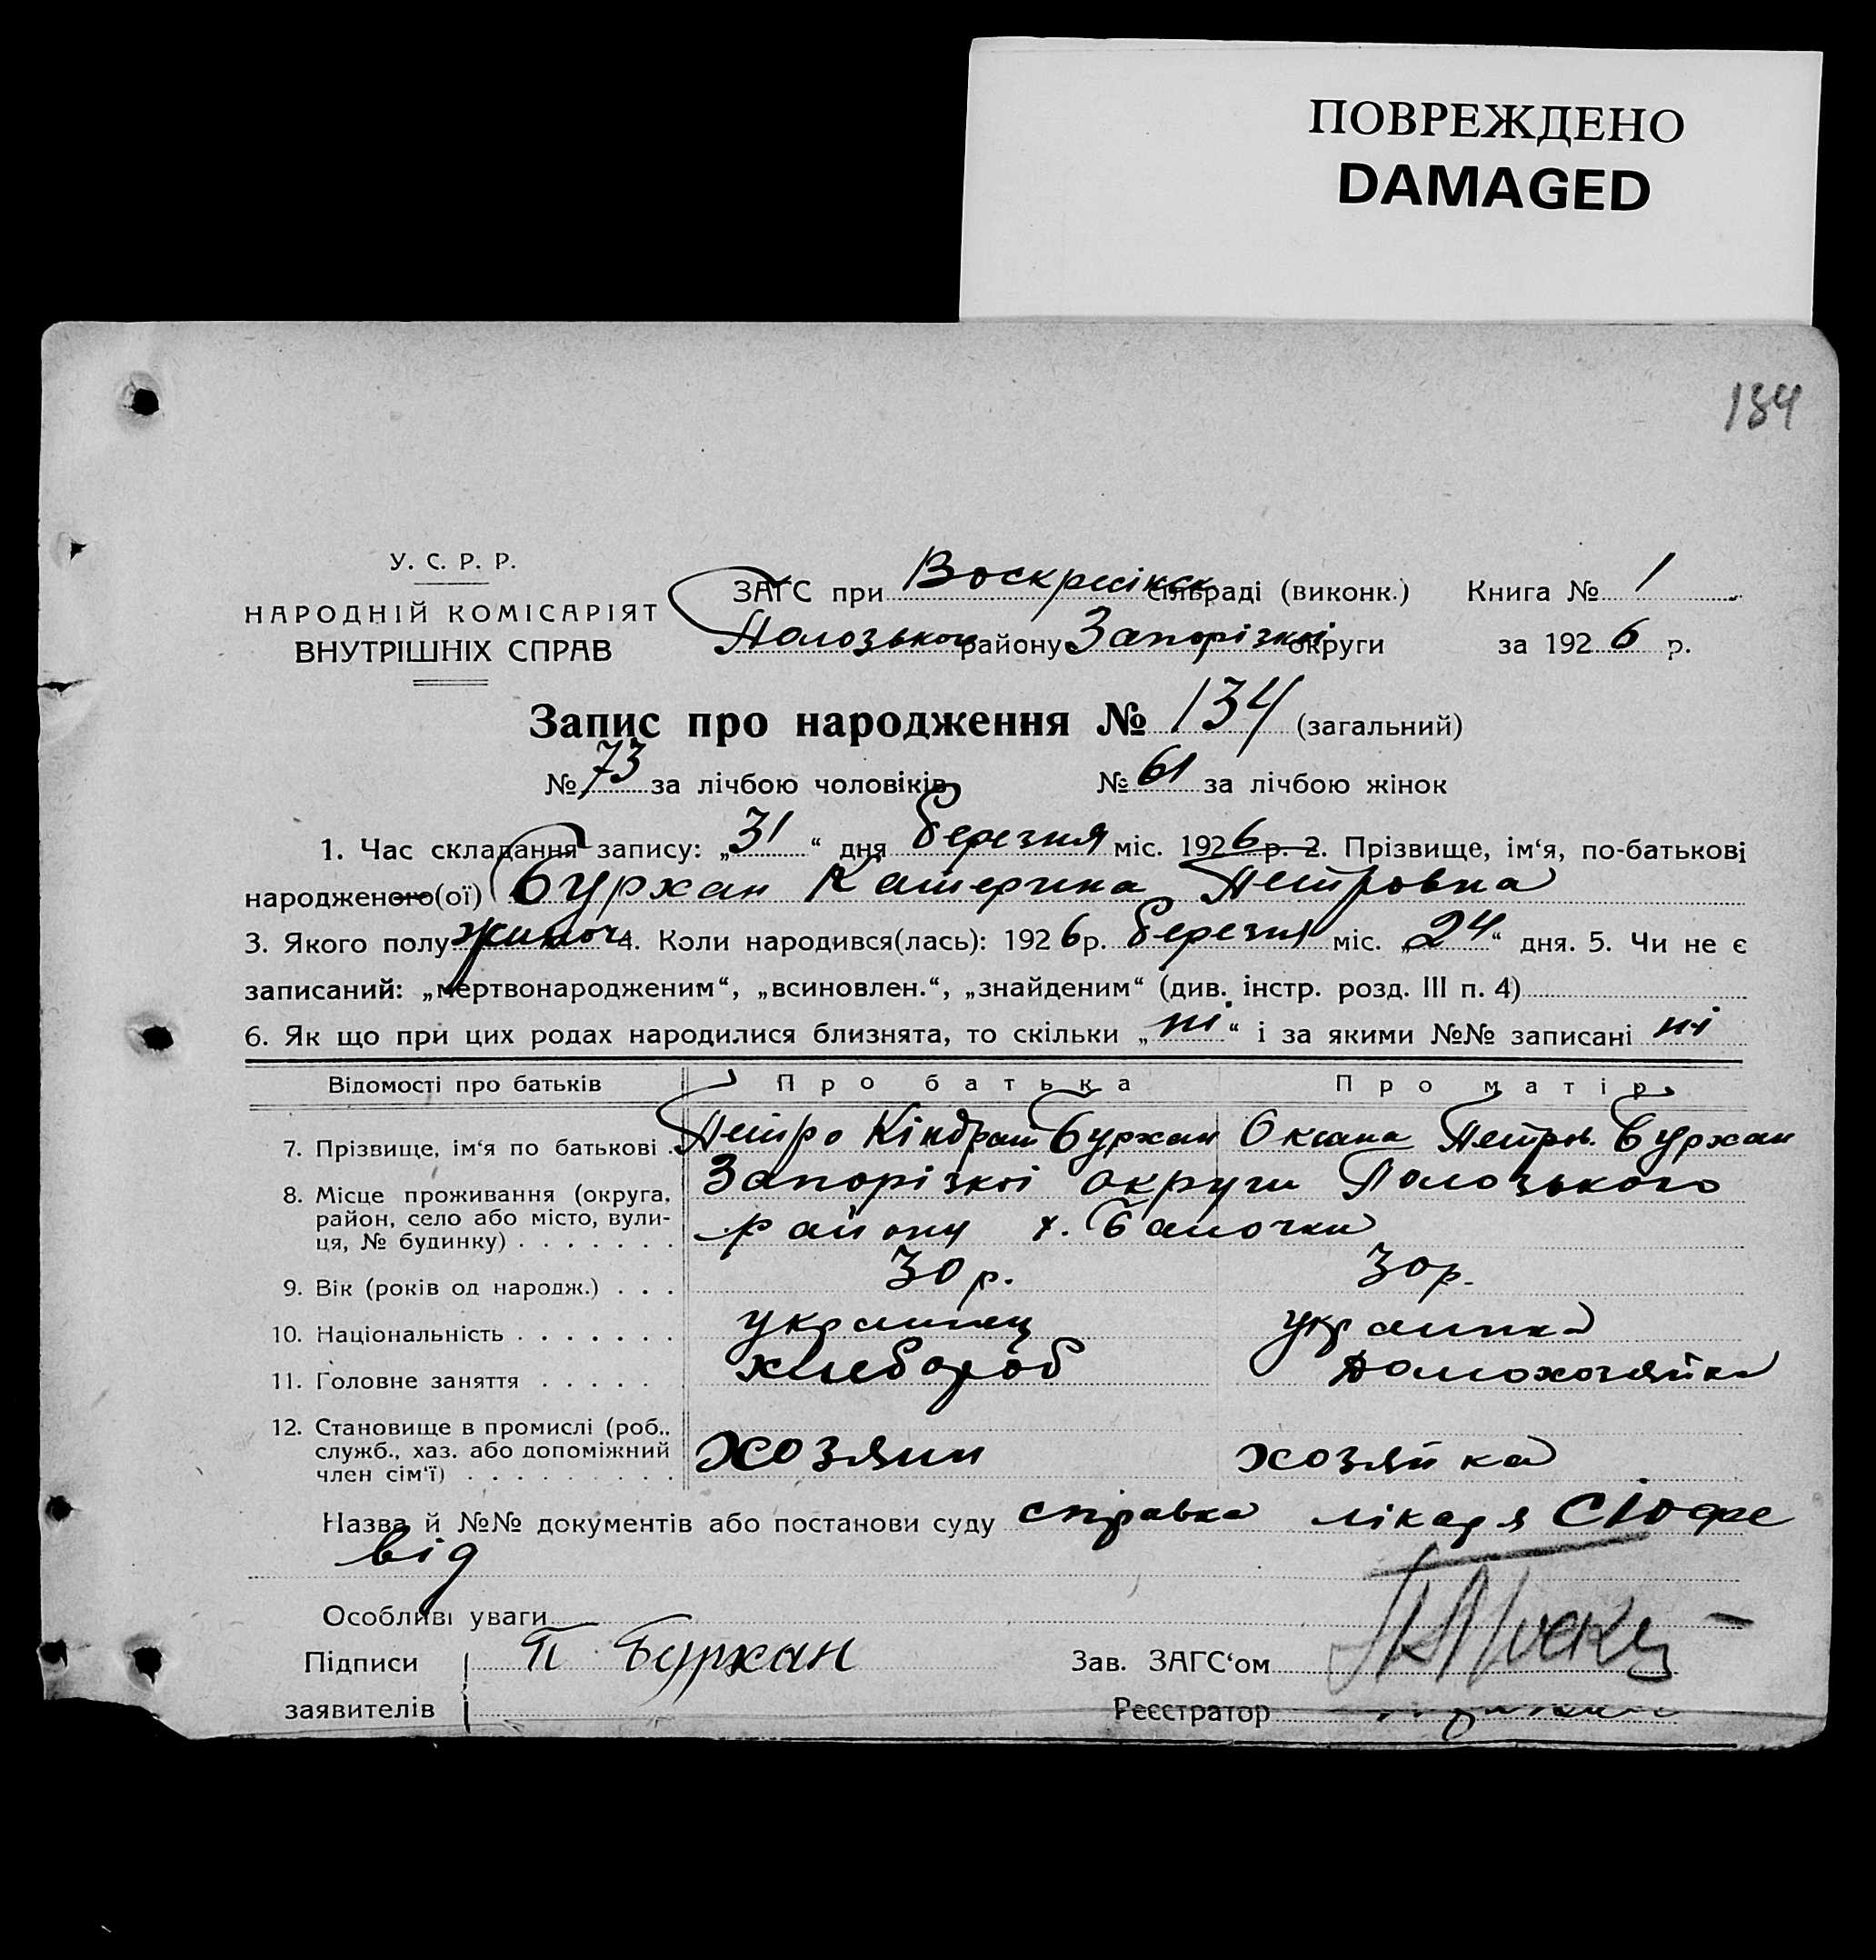 ПОВРЕЖДЕНО
DAMAGED
134
У. С. Р. Р.
НАРОДНІЙ КОМІСАРІЯТ
ВНУТРІШНІХ СПРАВ
ЗАГС при Воскресінск сільраді (виконк.) Книга № 1
Полозького району Запорізкої округи за 1926 р.
Запис про народження № 134 (загальний)
№ 73 за лічбою чоловіків № 61 за лічбою жінок
1. Час складання запису: „31“ дня березня міс. 1926 р. 2. Прізвище, ім‘я, по-батькові
народженого(ої) Бурхан Катерина Петровна
3. Якого полу жиноч 4. Коли народився(лась): 1926 р. березня міс. „24“ дня. 5. Чи не є
записаний: „мертвонародженим“, „всиновлен.“, „знайденим“ (див. інстр. розд. III п. 4)
6. Як що при цих родах народилися близнята, то скільки „ні“ і за якими №№ записані ні
Відомості про батьків Про батька Про матір
7. Прізвище, ім‘я по батькові . Петро Кіндрат Бурхан Оксана Петров. Бурхан
8. Місце проживання (округа, Запорізкої округи Полозького
район, село або місто, вули- району х. Балочки
ця, № будинку) . . . . . . .
9. Вік (років од народж.) . . . 30 р. 30 р.
10. Національність . . . . . . . украинец украинка
11. Головне заняття . . . . . хлебороб домохозяйка
12. Становище в промислі (роб.,
служб., хаз. або допоміжний хозяин хозяйка
член сім‘ї) . . . . . . . . .
Назва й №№ документів або постанови суду справка лікаря
від
Особливі уваги
Підписи П Бурхан Зав. ЗАГС‘ом
заявителів Реєстратор